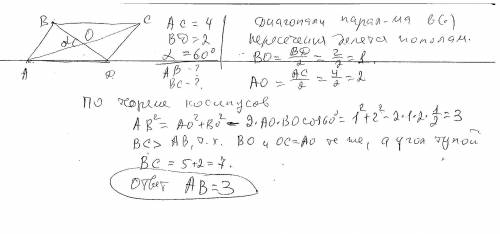 B C
α O
A D
AC = 4
BD = 2
α = 60°
AB - ?
BC - ?
Диагонали парал-ма в (·)
пересечения делятся пополам.
BO = BD/2 = 2/2 = 1
AO = AC/2 = 4/2 = 2
По теореме косинусов
AB² = AO² + BO² - 2·AO·BO cos60° = 1² + 2² - 2·1·2·1/2 = 3
BC > AB, т.к. BO и OC=AO те же, а угол тупой
BC = 5+2 = 7.
Ответ AB = 3